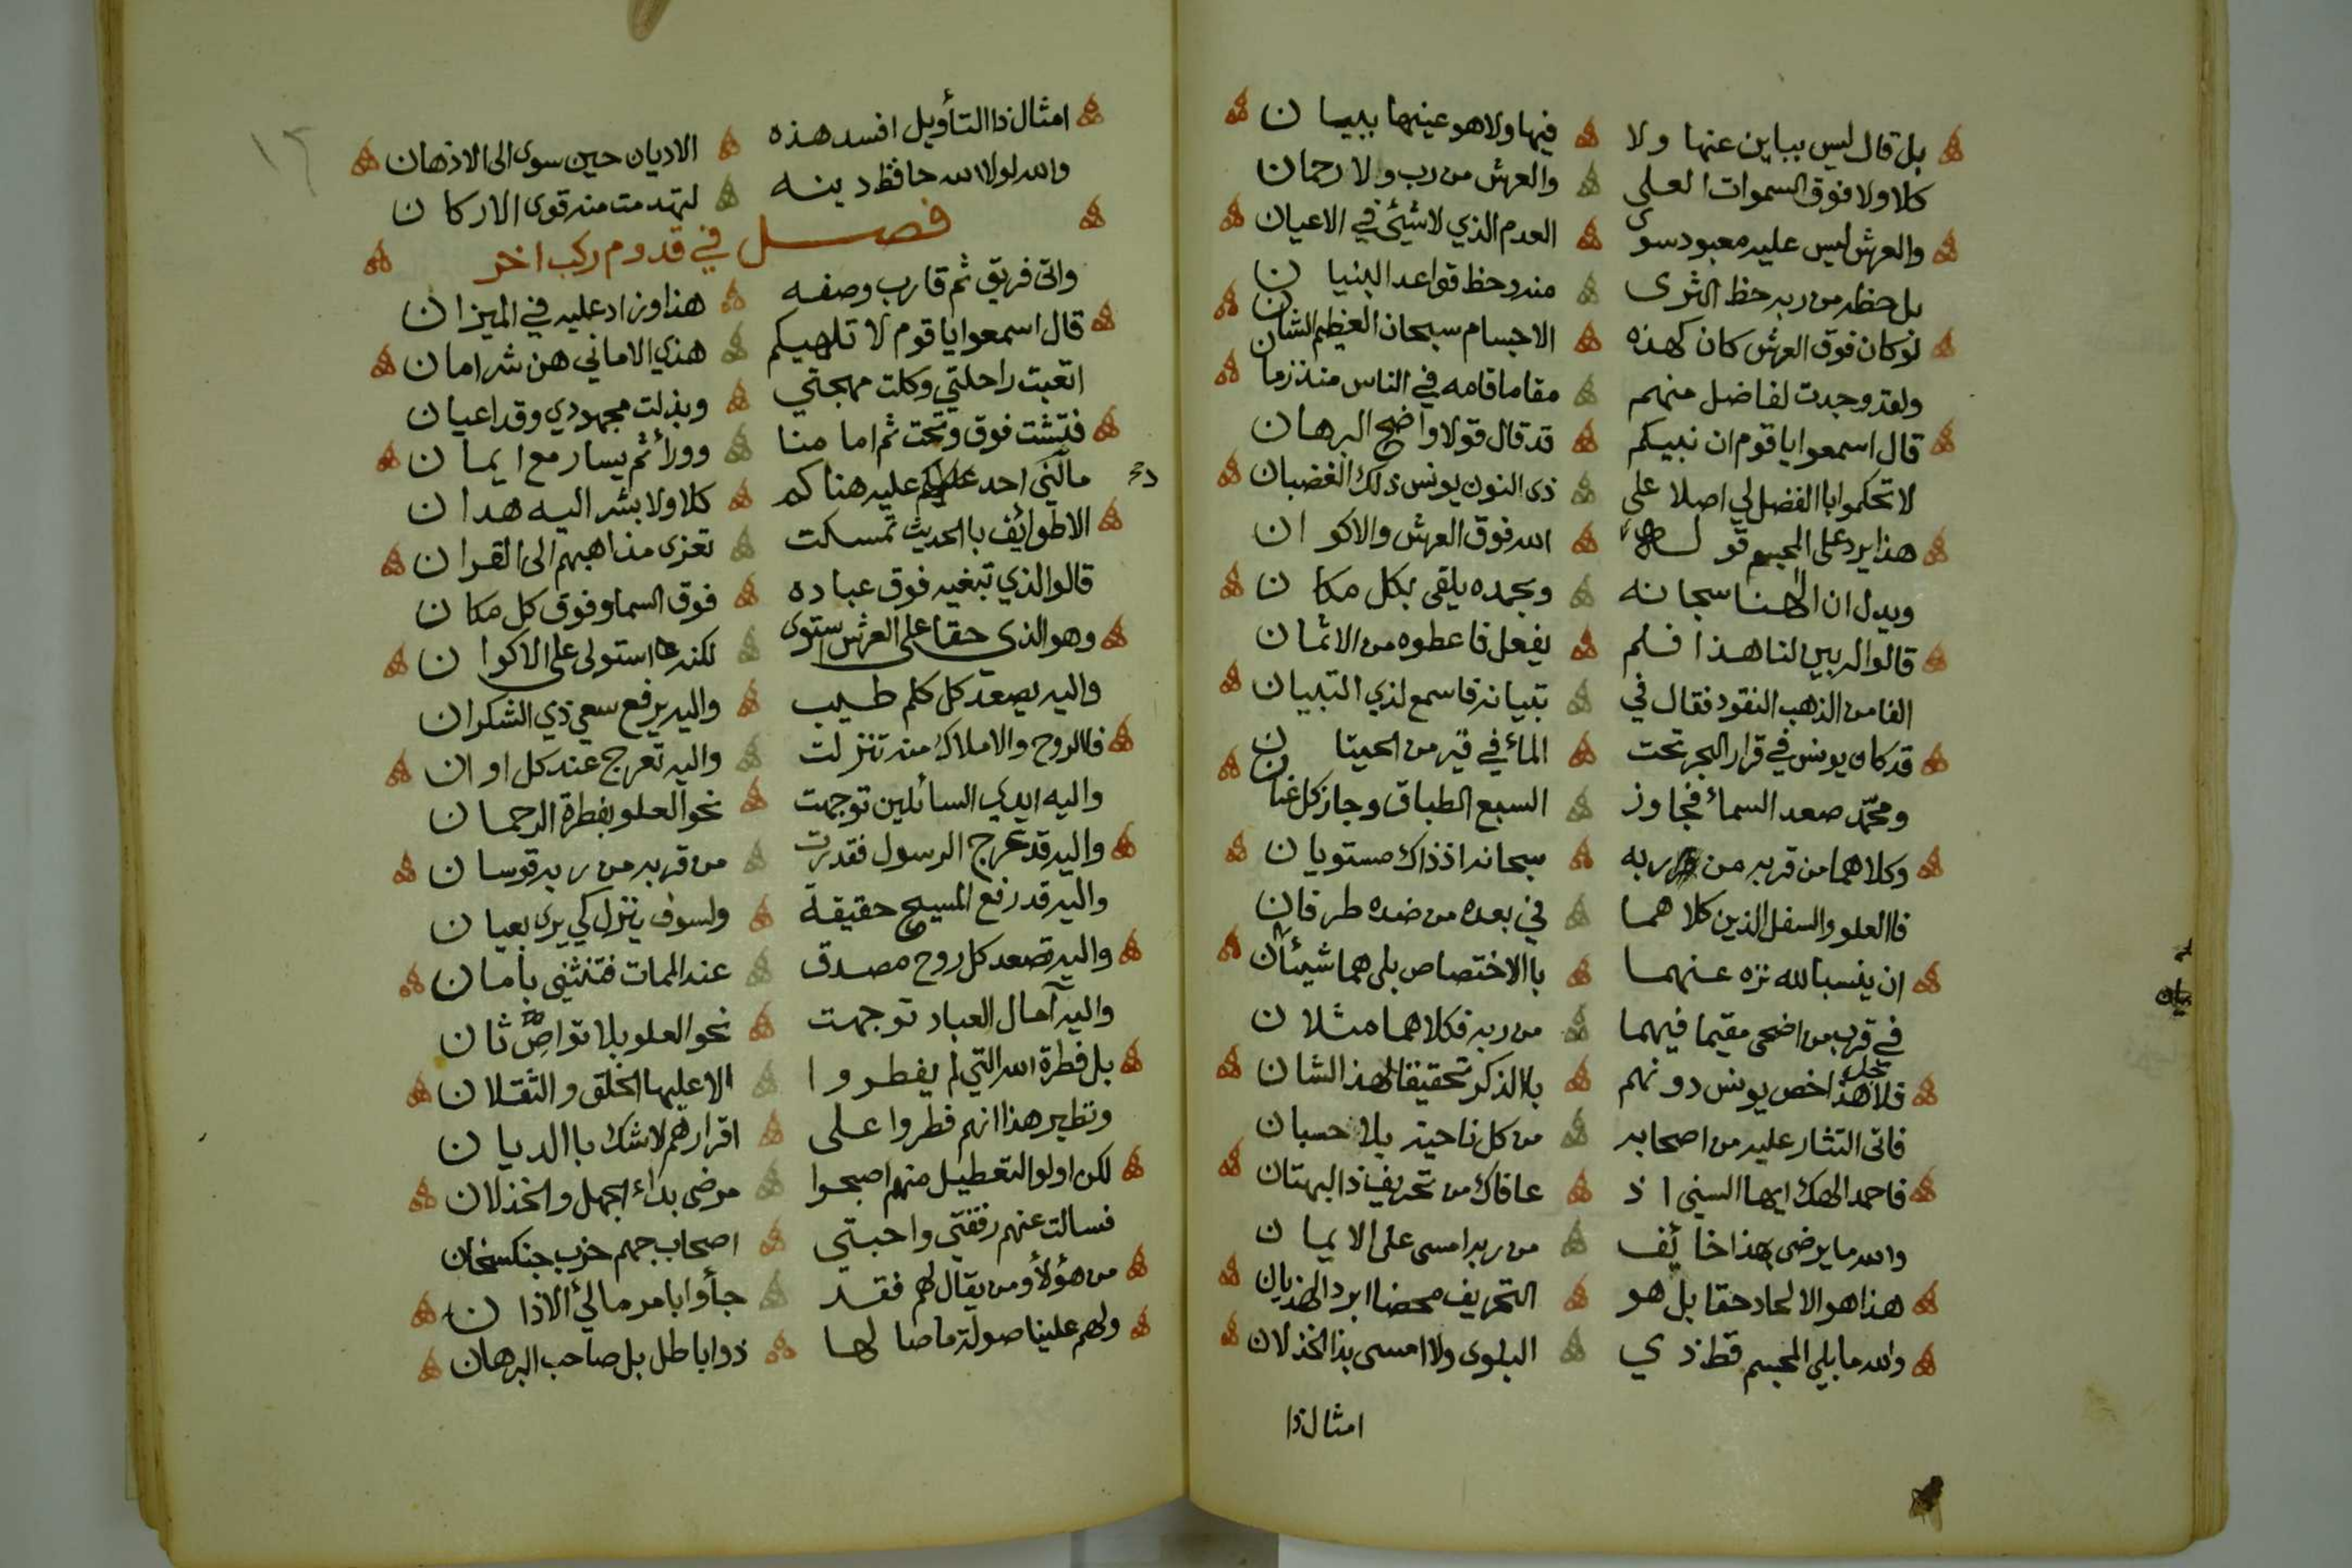 بل قال ليس بباين عنها ولا فيها ولا هو عينها ببيان
كلا ولا فوق السموات العلى والعرش من رب ولا رحمان
والعرش ليس عليه معبود سوى العدم الذي لا شيئ في الاعيان
بل حظه من ربه حظ الثرى منه وحظ قواعد البنيان
لو كان فوق العرش كان كهذه الاجسام سبحان العظيم الشان
ولقد وجدت لفاضل منهم مقاما قامه في الناس منذ زمان
قال اسمعوا يا قوم ان نبيكم قد قال قولا واضح البرهان
لا تحكموا با الفضل لي اصلا على ذى النون يونس ذلك الغضبان
هذا يرد على المجسم قوله الله فوق العرش والاكوان
ويدل ان الهنا سبحانه وبحمده يلقى بكل مكان
قالوا له بين لنا هذا فلم يفعل فاعطوه من الاثمان
الفا من الذهب النقود فقال في تبيانه فاسمع لذي التبيان
قد كان يونس في قرار البحر تحت المأ في قبر من الحيتان
ومحمّد صعد السمأ فجاوز السبع الطباق وجاز كل عنان
وكلاهما من قربه من ربه سبحانه اذ ذاك مستويان
فا العلو والسفل الذين كلاهما في بعده من ضده طرفان
ان ينسبا لله نزه عنهما با الاختصاص بلى هما شيئان
في قرب من اضحى مقيما فيهما من ربه فكلاهما مثلان
فلاجل هذا خص يونس دونهم با الذكر تحقيقا لهذا الشان
فاتى النثار عليه من اصحابه من كل ناحية بلا حسبان
فاحمد الهك ايها السني اذ عافاك من تحريف ذا البهتان
والله ما يرضى بهذا خائف من ربه امسى على الايمان
هذا هو الالحاد حقا بل هو التحريف محضا ابرد الهذيان
والله ما بلي المجسم قط ذي البلوى ولا امسى بذا الخذلان
امثال ذا
١٢
امثال ذا التأويل افسد هذه الاديان حين سرى الى الاذهان
والله لولا الله حافظ دينه لتهدمت منه قوى الاركان
فصل في قدوم ركب اخر
واتى فريق ثم قارب وصفه هذا وزاد عليه في الميزان
قال اسمعوا يا قوم لا تلهيكم هذي الاماني هن شر امان
اتعبت راحلتي وكلت مهجتي وبذلت مجهودي وقد اعيان
فتشت فوق وتحت ثم اما منا وورأ ثم يسار مع ايمان
ما دلني احد عليه هناكم كلا ولا بشر اليه هدان
الا طوائف با الحديث تمسكت تعزى مذاهبهم الى القران
قالوا الذي تبغيه فوق عباده فوق السما وفوق كل مكان
وهو الذي حقا على العرش استوى لكنه استولى على الاكوان
واليه يصعد كل كلم طيب واليه يرفع سعي ذي الشكران
فا الروح والاملاك منه تنزلت واليه تعرج عند كل اوان
واليه ايدي السائلين توجهت نحو العلو بفطرة الرحمان
واليه قد عرج الرسول فقدرت من قربه من ربه قوسان
واليه قد رفع المسيح حقيقة ولسوف ينزل كي يرى بعيان
واليه تصعد كل روح مصدق عند الممات فتنثني بأمان
واليه آمال العباد توجهت نحو العلو بلا تواصٍ ثان
بل فطرة الله التي لم يفطروا الا عليها الخلق والثقلان
ونظير هذا انهم فطروا على اقرارهم لا شك با الديان
لكن اولو التعطيل منهم اصبحوا مرضى بداء الجهل والخذلان
فسالت عنهم رفقتي واحبتي اصحاب جهم حزب جنكسخان
من هؤلأ ومن يقال لهم فقد جأوا بامر مالئ الاذان
ولهم علينا صولة ما صالها ذو اباطل بل صاحب البرهان